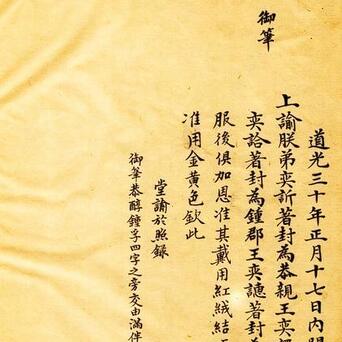 御筆
道光三十年正月十七日内
上諭朕弟奕訢著封為恭親王奕
奕詥著封為鍾郡王奕譓著封
服後俱加恩准其戴用紅絨結
准用金黄色欽此
堂諭於照錄
御筆恭醇鍾孚四字之旁交由滿伴